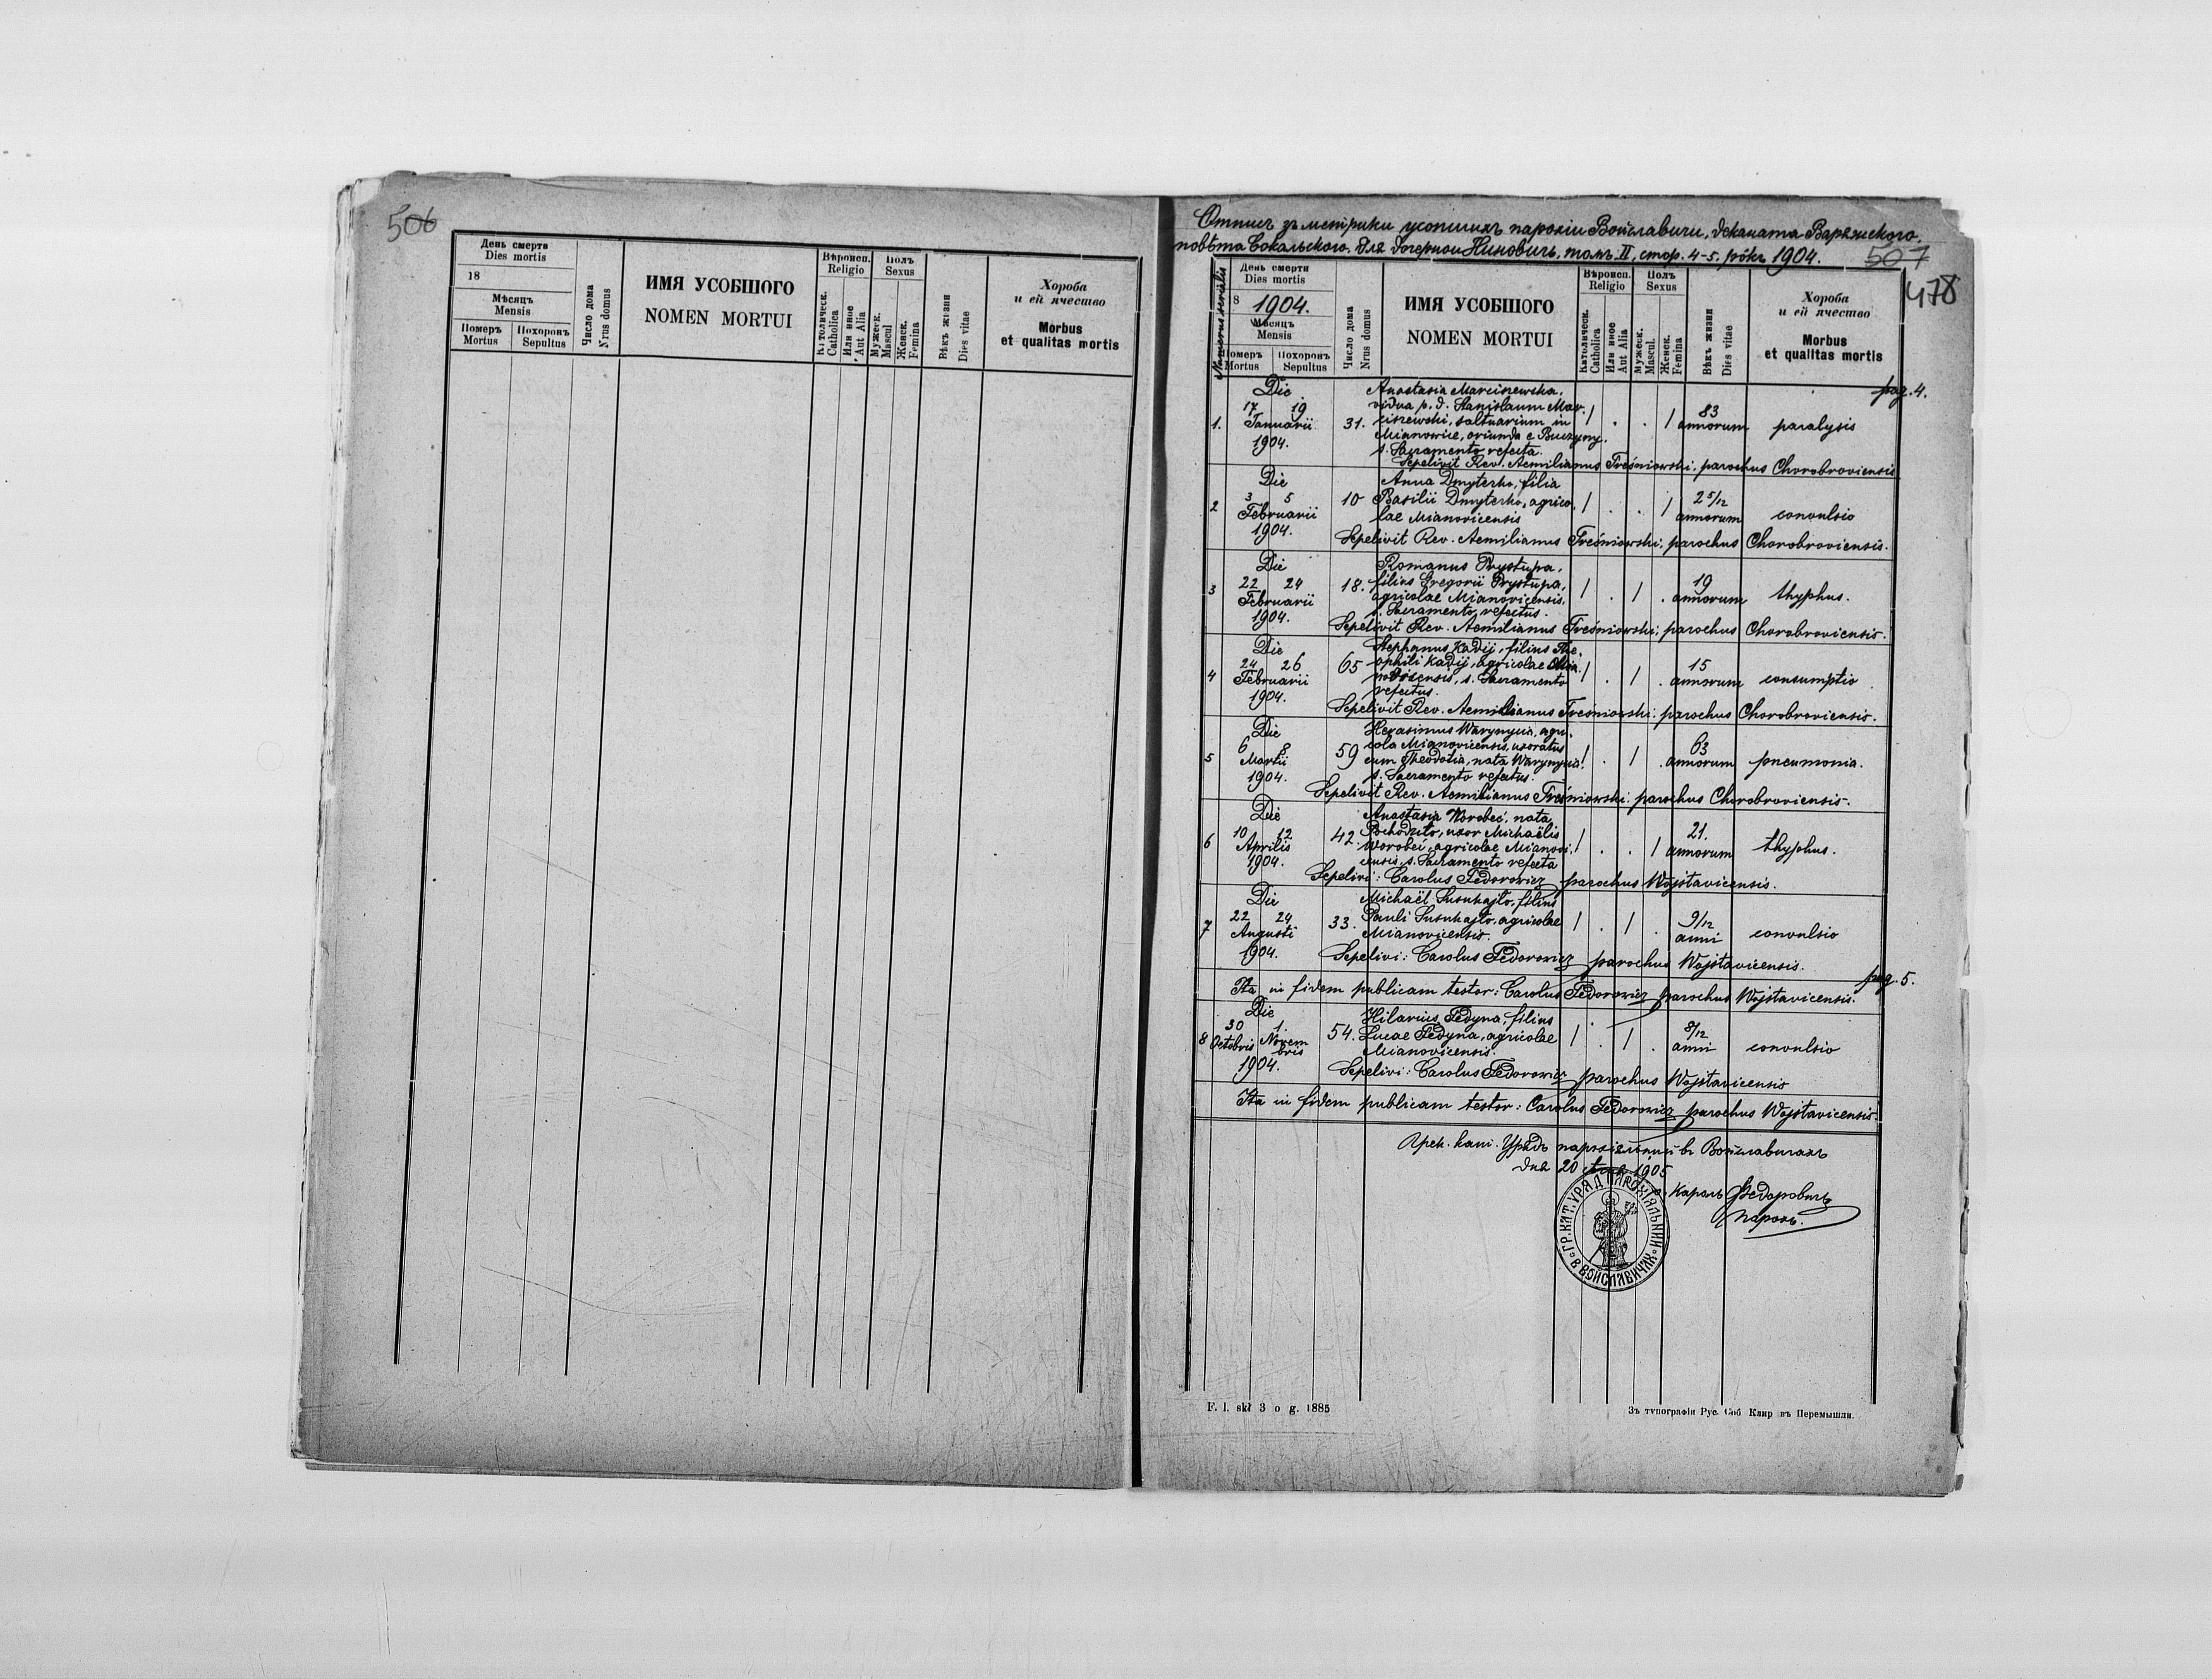 506
День смерти
Dies mortis
18
Мѣсяцъ
Mensis
Померъ
Mortus
Похоронъ
Sepultus
Число дома
Nrus domus
ИМЯ УСОБШОГО
NOMEN MORTUI
Вѣроисп.
Religio
Католическ.
Catholica
Или иное
Aut Alia
Полъ
Sexus
Мужеск.
Mascul
Женск.
Femina
Вѣкъ жизни
Dies vitae
Хороба
и ей ячество
Morbus
et qualitas mortis
Отпись зъ метрики усопшихъ парохіи Войславичи, деканата Варяжского,
повѣта Сокальского. для дочерной Ниновичъ, томъ II, стор. 4-5. рôкъ 1904.
507
478
Numerus serialis
День смерти
Dies mortis
18 1904.
Мѣсяцъ
Mensis
Померъ
Mortus
Похоронъ
Sepultus
Число дома
Nrus domus
ИМЯ УСОБШОГО
NOMEN MORTUI
Вѣроисп.
Religio
Католическ.
Catholica
Или иное
Aut Alia
Полъ
Sexus
Мужеск.
Mascul.
Женск.
Femina
Вѣкъ жизни
Dies vitae
Хороба
и ей ячество
Morbus
et qualitas mortis
pag. 4.
Die Anastasia Marciszewska,
17 19 vidua p. d. Stanislaum Mar- 83
1. Januarii 31. ciszewski, saltuarium in / . . / annorum paralysis
1904. Mianowice, oriunda e
s. Sacramento refecta.
Sepelivit Rev. Aemilianus Treśniowski, parochus Chorobroviensis
Die Anna Dmyterko, filia
3 5 10 Basilii Dmyterko, agrico- / . . / 2 5/12
2 Februarii lae Mianovicensis annorum convulsio
1904. Sepelivit Rev. Aemilianus Treśniowski, parochus Chorobroviensis.
Die Romanus Prystupa,
22 24 18. filius Gregorii Prystupa, 19
3 Februarii agricolae Mianovicensis, / . / . annorum thyphus.
1904. s. Sacramento refectus.
Sepelivit Rev. Aemilianus Treśniowski, parochus Chorobroviensis.
Die Stephanus Kadij, filius The-
24 26 65 ophili Kadij, agricolae Mia- 15
4 Februarii novicensis, s. Sacramento / . / . annorum consumptio
1904. refectus.
Sepelivit Rev. Aemilianus Treśniowski, parochus Chorobroviensis.
Die Herasimus Warynycia, agri-
6 8 59 cola Mianovicensis, uxoratus 63
5 Martii cum Theodotia, nata Warynycia / . / . annorum pneumonia.
1904. s. Sacramento refectus.
Sepelivit Rev. Aemilianus Treśniowski, parochus Chorobroviensis.
Die Anastasia Worobec, nata
10 12 42. Pochodziło, uxor Michaëlis 21.
6 Aprilis Worobec, agricolae Mianovi- / . . / annorum thyphus.
1904. censis, s. Sacramento refecta
Sepelivi: Carolus Fedorowicz parochus Wojsławicensis.
Die Michaël Susukajło, filius
22 24 33. Pauli Susukajło, agricolae / . / . 9/12
7 Augusti Mianovicensis. anni convulsio
1904. Sepelivi: Carolus Fedorowicz parochus Wojsławicensis.
pag. 5.
Ita in fidem publicam testor: Carolus Fedorowicz parochus Wojsławicensis.
Die Hilarius Fedyna, filius
30 1. 54. Lucae Fedyna, agricolae / . / . 8/12
8 Octobris Novem- Mianovicensis. anni convulsio
bris
1904. Sepelivi: Carolus Fedorowicz parochus Wojsławicensis
Ita in fidem publicam testor: Carolus Fedorowicz parochus Wojsławicensis.
Грек. кат. Урядъ парохіяльный въ Войславичахъ
дня 20 1905
Кароль Федоровичъ
парохъ.
ГР. КАТ. УРЯД ПАРОХІЯЛЬНИЙ В ВОЙСЛАВИЧАХ
F. l. skł 3 o g. 1885
Зъ типографіи Рус. Соб Клир въ Перемышли.